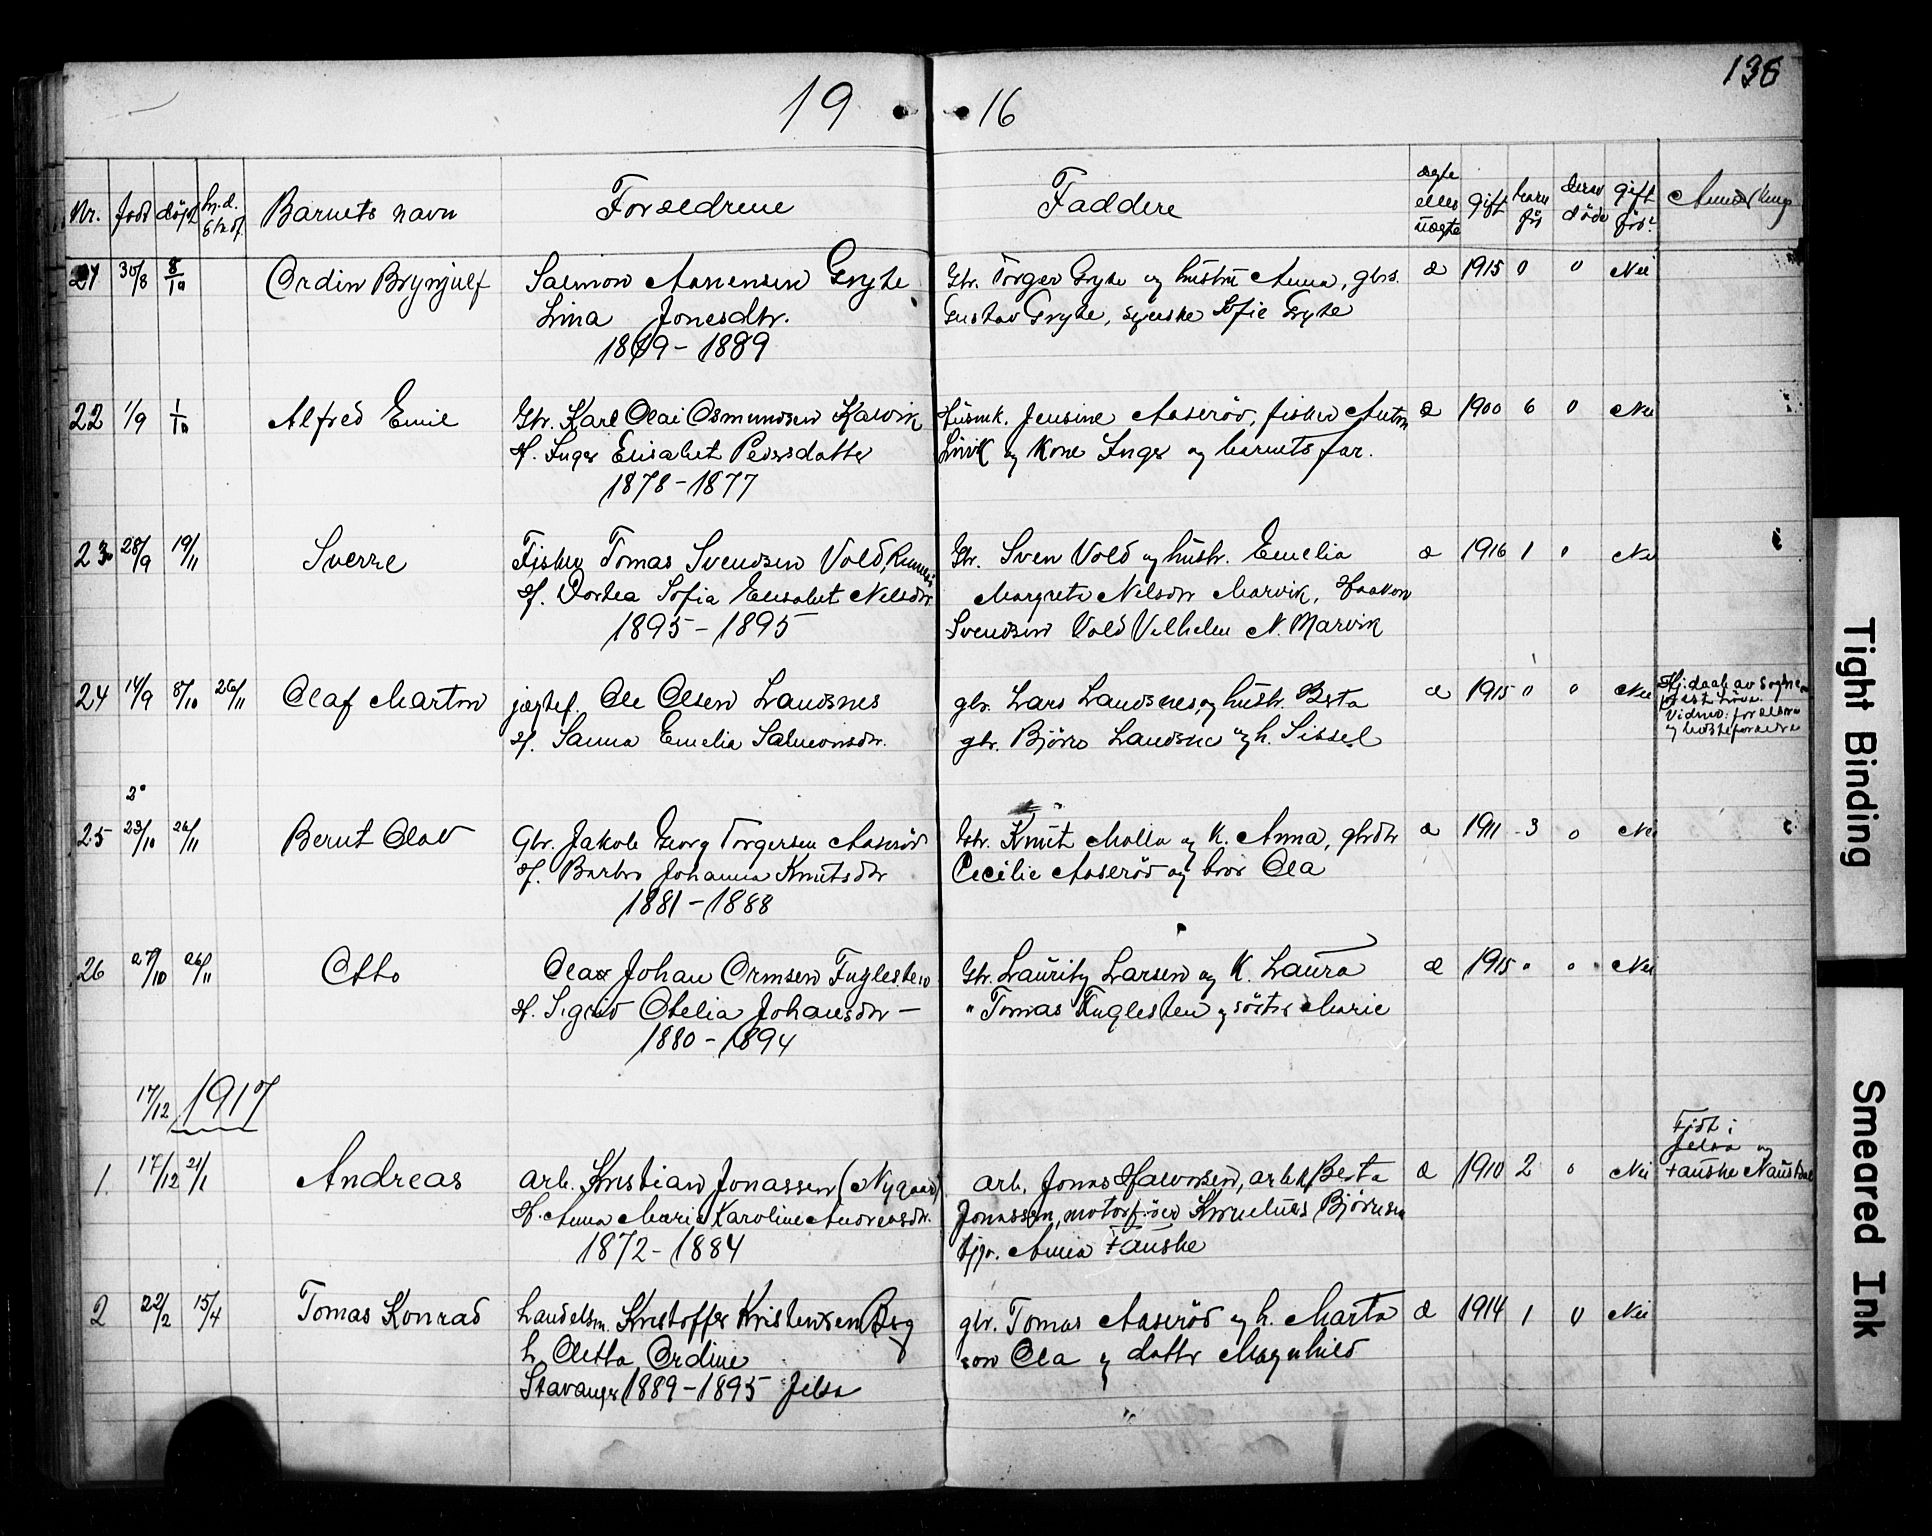 138
19 16
Nr. født døpt hj.d. stadf. Barnets navn Forældrene Faddere ægte eller uægte gift barn før derav døde gift før?
21 30/8 8/10 Ordin Brynjulf Salmon Aanensen Gryte Gbr. Torger Gryte og hustru Anna, gbrs. æ 1915 0 0 Nei
Lina Jonesdtr. Gustav Gryte, Sofie Gryte
1889 - 1889
22 1/9 1/10 Alfred Emil Gbr. Karl Olai Osmundsen Kalvik Husmk. Jensine Aaserød, fisker Anton æ 1900 6 0 Nei
H. Inger Elisabet Pedersdatter og kone Inger og barnets far.
1878 - 1877
23 28/9 19/11 Sverre Fisker Tomas Svendsen Vold, Gbr. Sven Vold og hustr. Emelia æ 1916 1 0 Nei
H. Dortea Sofia Elisabet Nelsdtr Margrete Nelsdtr Marvik, Haakon
1895 - 1895 Svendsen Vold Vilhelm N. Marvik
24 14/9 8/10 26/11 Olaf Marton jægtef. Ole Olsen Landsnes gbr. Lars Landsnes og hustr. Berta æ 1915 0 0 Nei Hj.daab av sogne
H. Sanna Emelia Salmonsdtr. gbr. Bjørn Landsnes og h. Sissel
Vidner: forældre
og besteforældre
25 23/10 26/11 Bernt Olav Gbr. Jakob Georg Torgersen Aaserød Gbr. Knut Molla og k. Anna, gbrdtr æ 1911 3 0 Nei
H. Barbro Johanna Knutsdtr Cecilie Aaserød og bror Ola
1881 - 1888
26 27/10 26/11 Otto Olav Johan Ormsen Fuglesten Gbr. Lauritz Larsen og k. Laura æ 1915 0 0 Nei
H. Sigrid Otelia Johansdtr — " Tomas Fuglesten og søster Marie
1880 - 1894
17/12 1917
1. 17/12 21/1 Andreas Arb. Kristian Jonassen (Nygaard) Arb. Jonas Halvorsen, arbek. Berta æ 1910 2 0 Nei Født i Jelsa og Fauske Naustdal
H. Anna Marie Karoline Andreasdtr. Jonassen, motorfører Kornelius Bjørnsen
1872 - 1884 tjp. Anna Fauske
2 22/2 15/4 Tomas Konrad Handelsm. Kristoffer Kristensen Berg gbr. Tomas Aaserød og h. Marta æ 1914 1 0 Nei
h. Oletta Ordine søn Ola og datter Magnhild
Stavanger 1889 - 1895 Jelsa
Tight Binding
Smeared Ink